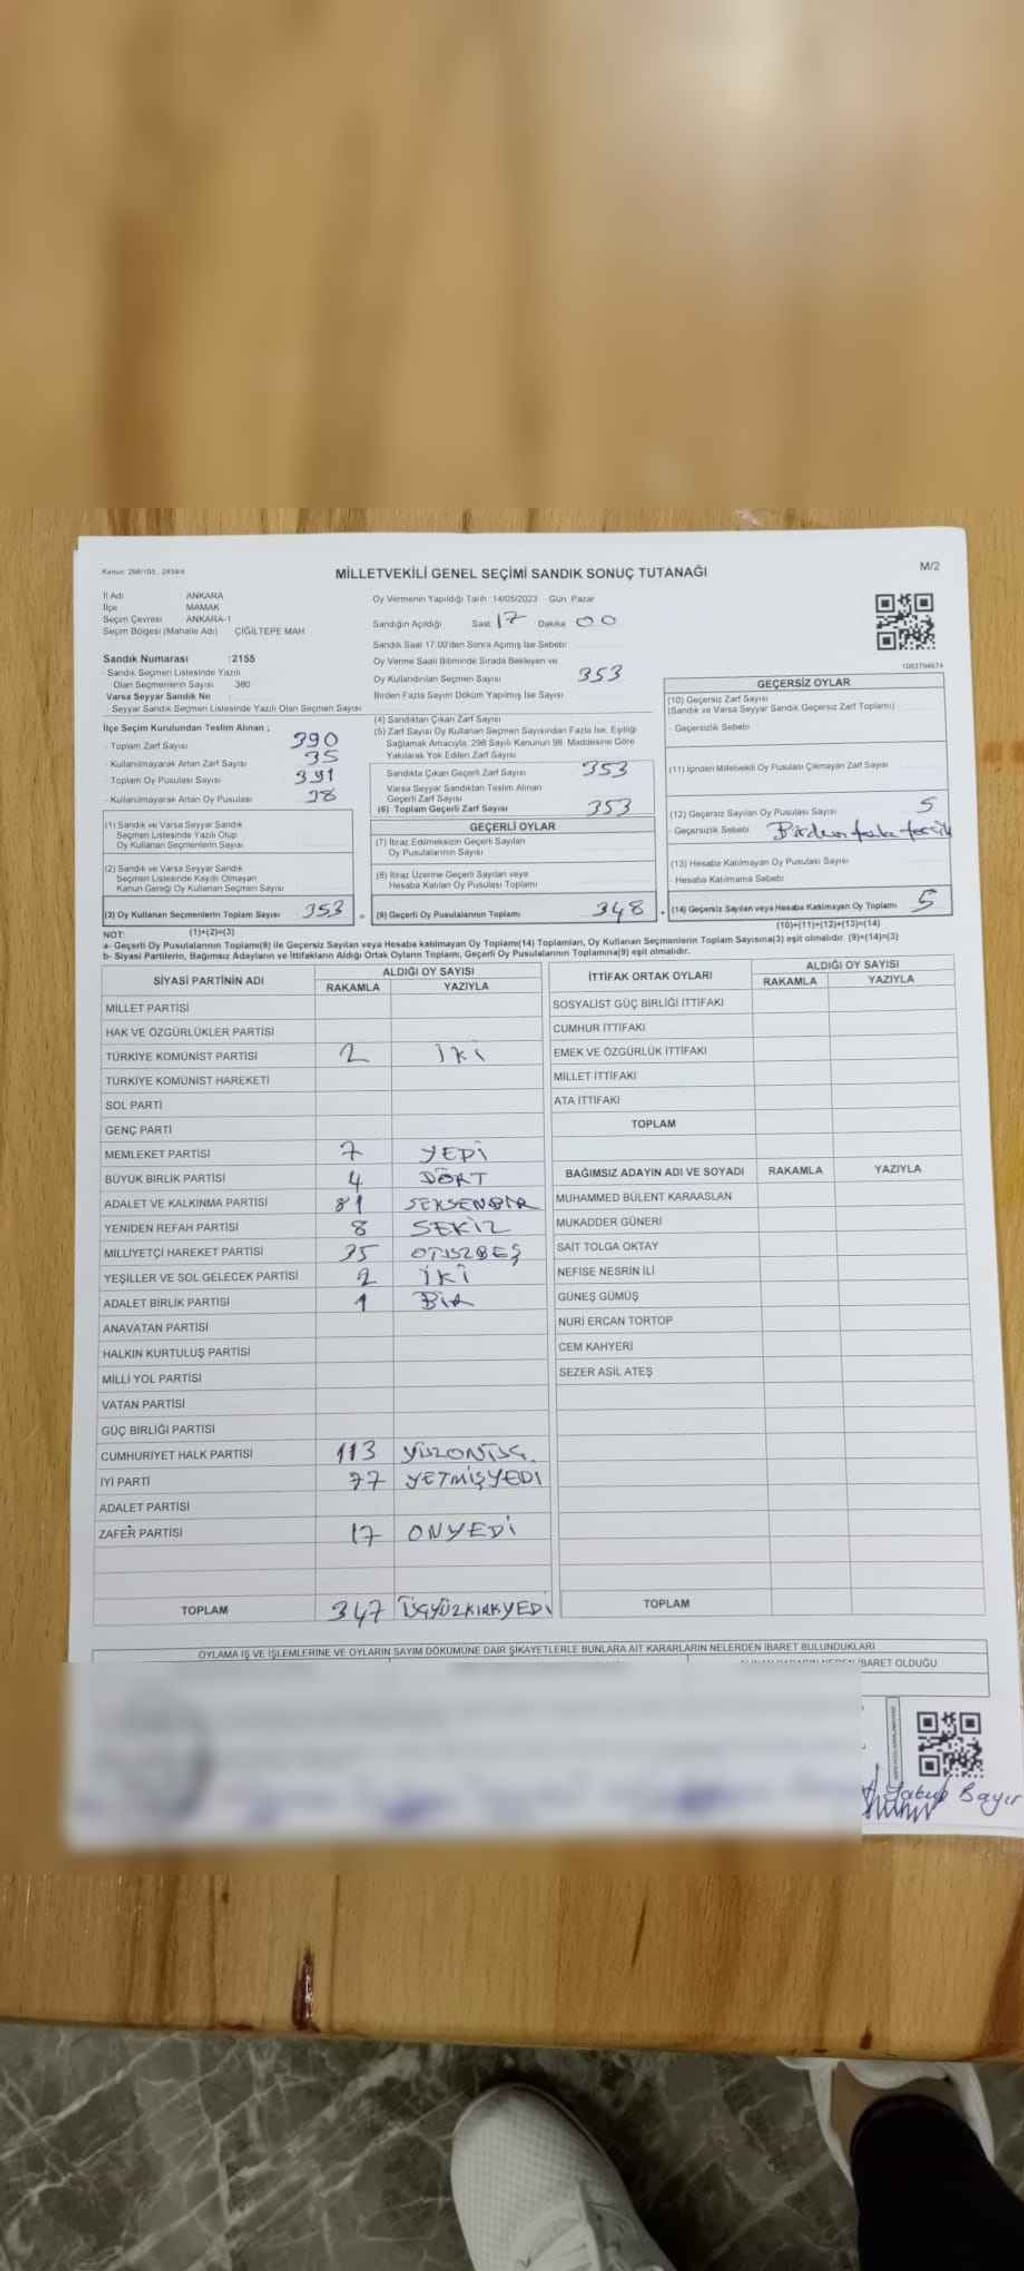 Kanun: 298/105 , 2839/4
MİLLETVEKİLİ GENEL SEÇİMİ SANDIK SONUÇ TUTANAĞI
M/2
İl Adı ANKARA
İlçe MAMAK
Seçim Çevresi ANKARA-1
Seçim Bölgesi (Mahalle Adı) ÇİĞİLTEPE MAH
Sandık Numarası :2155
Sandık Seçmen Listesinde Yazılı
Olan Seçmenlerin Sayısı 380
Varsa Seyyar Sandık No :
Seyyar Sandık Seçmen Listesinde Yazılı Olan Seçmen Sayısı
İlçe Seçim Kurulundan Teslim Alınan ;
- Toplam Zarf Sayısı 390
- Kullanılmayarak Artan Zarf Sayısı 35
- Toplam Oy Pusulası Sayısı 391
- Kullanılmayarak Artan Oy Pusulası 38
(1) Sandık ve Varsa Seyyar Sandık
Seçmen Listesinde Yazılı Olup
Oy Kullanan Seçmenlerin Sayısı
(2) Sandık ve Varsa Seyyar Sandık
Seçmen Listesinde Kayıtlı Olmayan
Kanun Gereği Oy Kullanan Seçmen Sayısı
(3) Oy Kullanan Seçmenlerin Toplam Sayısı 353
Oy Vermenin Yapıldığı Tarih :14/05/2023 Gün Pazar
Sandığın Açıldığı Saat 17 Dakika 00
Sandık Saat 17.00'den Sonra Açılmış İse Sebebi
Oy Verme Saati Bitiminde Sırada Bekleyen ve
Oy Kullandırılan Seçmen Sayısı 353
Birden Fazla Sayım Döküm Yapılmış İse Sayısı
(4) Sandıktan Çıkan Zarf Sayısı
(5) Zarf Sayısı Oy Kullanan Seçmen Sayısından Fazla İse, Eşitliği
Sağlamak Amacıyla, 298 Sayılı Kanunun 98. Maddesine Göre
Yakılarak Yok Edilen Zarf Sayısı
Sandıkta Çıkan Geçerli Zarf Sayısı 353
Varsa Seyyar Sandıktan Teslim Alınan
Geçerli Zarf Sayısı
(6) Toplam Geçerli Zarf Sayısı 353
GEÇERLİ OYLAR
(7) İtiraz Edilmeksizin Geçerli Sayılan
Oy Pusulalarının Sayısı
(8) İtiraz Üzerine Geçerli Sayılan veya
Hesaba Katılan Oy Pusulası Toplamı
= (9) Geçerli Oy Pusulalarının Toplamı 348
1083794674
GEÇERSİZ OYLAR
(10) Geçersiz Zarf Sayısı
(Sandık ve Varsa Seyyar Sandık Geçersiz Zarf Toplamı)
- Geçersizlik Sebebi
(11) İçinden Milletvekili Oy Pusulası Çıkmayan Zarf Sayısı
(12) Geçersiz Sayılan Oy Pusulası Sayısı 5
Geçersizlik Sebebi Birden fazla tercih
(13) Hesaba Katılmayan Oy Pusulası Sayısı
- Hesaba Katılmama Sebebi
+ (14) Geçersiz Sayılan veya Hesaba Katılmayan Oy Toplamı 5
NOT: (1)+(2)=(3) (10)+(11)+(12)+(13)=(14)
a- Geçerli Oy Pusulalarının Toplamı(9) ile Geçersiz Sayılan veya Hesaba katılmayan Oy Toplamı(14) Toplamları, Oy Kullanan Seçmenlerin Toplam Sayısına(3) eşit olmalıdır. (9)+(14)=(3)
b- Siyasi Partilerin, Bağımsız Adayların ve İttifakların Aldığı Ortak Oyların Toplamı, Geçerli Oy Pusulalarının Toplamına(9) eşit olmalıdır.
SİYASİ PARTİNİN ADI ALDIĞI OY SAYISI
RAKAMLA YAZIYLA
MİLLET PARTİSİ
HAK VE ÖZGÜRLÜKLER PARTİSİ
TÜRKİYE KOMÜNİST PARTİSİ 2 İKİ
TÜRKİYE KOMÜNİST HAREKETİ
SOL PARTİ
GENÇ PARTİ
MEMLEKET PARTİSİ 7 YEDİ
BÜYÜK BİRLİK PARTİSİ 4 DÖRT
ADALET VE KALKINMA PARTİSİ 81 SEKSENBİR
YENİDEN REFAH PARTİSİ 8 SEKİZ
MİLLİYETÇİ HAREKET PARTİSİ 35 OTUZBEŞ
YEŞİLLER VE SOL GELECEK PARTİSİ 2 İKİ
ADALET BİRLİK PARTİSİ 1 BİR
ANAVATAN PARTİSİ
HALKIN KURTULUŞ PARTİSİ
MİLLİ YOL PARTİSİ
VATAN PARTİSİ
GÜÇ BİRLİĞİ PARTİSİ
CUMHURİYET HALK PARTİSİ 113 YÜZONÜÇ.
İYİ PARTİ 77 YETMİŞYEDİ
ADALET PARTİSİ
ZAFER PARTİSİ 17 ONYEDİ
TOPLAM 347 ÜÇYÜZKIRKYEDİ
İTTİFAK ORTAK OYLARI ALDIĞI OY SAYISI
RAKAMLA YAZIYLA
SOSYALİST GÜÇ BİRLİĞİ İTTİFAKI
CUMHUR İTTİFAKI
EMEK VE ÖZGÜRLÜK İTTİFAKI
MİLLET İTTİFAKI
ATA İTTİFAKI
TOPLAM
BAĞIMSIZ ADAYIN ADI VE SOYADI RAKAMLA YAZIYLA
MUHAMMED BÜLENT KARAASLAN
MUKADDER GÜNERİ
SAİT TOLGA OKTAY
NEFİSE NESRİN İLİ
GÜNEŞ GÜMÜŞ
NURİ ERCAN TORTOP
CEM KAHYERİ
SEZER ASİL ATEŞ
TOPLAM
OYLAMA İŞ VE İŞLEMLERİNE VE OYLARIN SAYIM DÖKÜMÜNE DAİR ŞİKAYETLERLE BUNLARA AİT KARARLARIN NELERDEN İBARET BULUNDUKLARI
İBARET OLDUĞU
Yakup Bayır